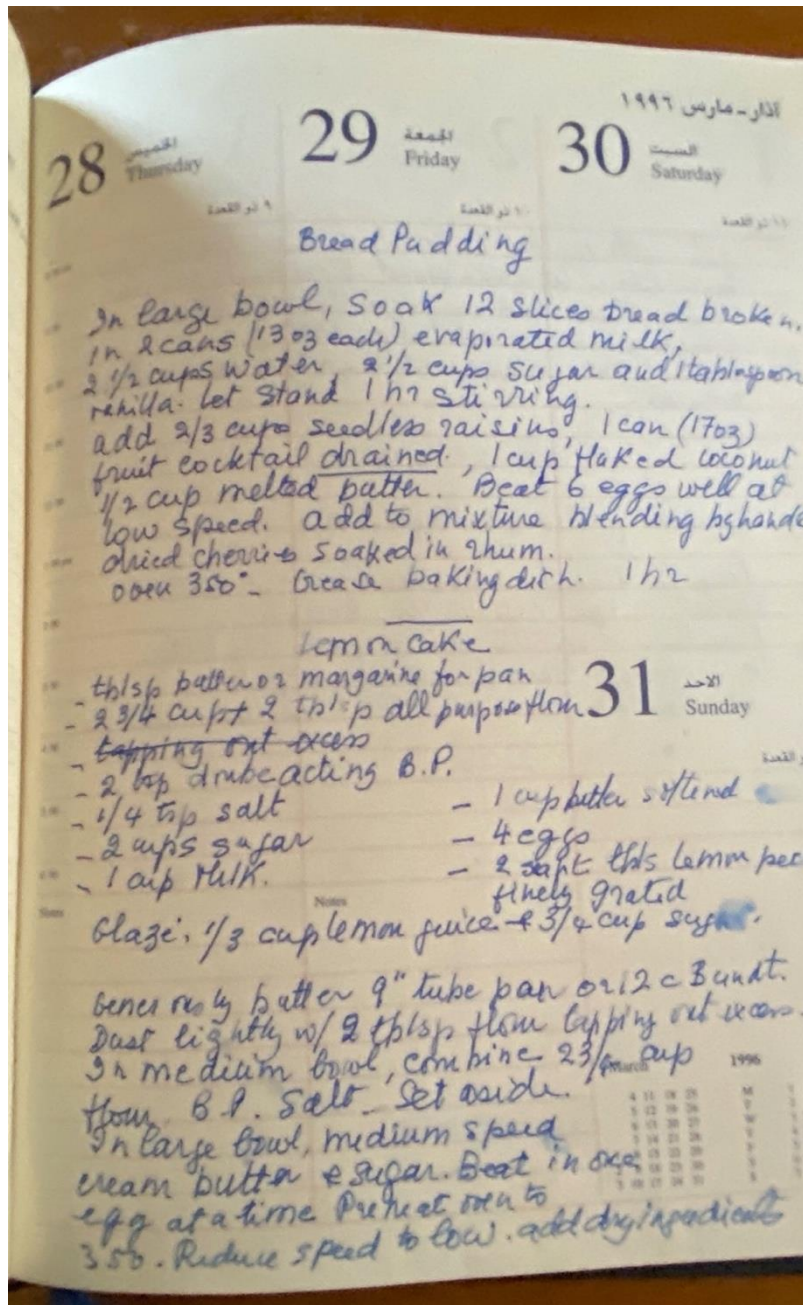 آذار - مارس ١٩٩٦
28 الخميس Thursday
29 الجمعة Friday
30 السبت Saturday
٩ ذو القعدة
١٠ ذو القعدة
١١ ذو القعدة
Bread Pudding
In large bowl, Soak 12 slices bread broken,
in 2 cans (13 oz each) evaporated milk,
2 1/2 cups water, 2 1/2 cups sugar and 1 tablespoon
vanilla. Let Stand 1 hr stirring.
add 2/3 cups seedless raisins, 1 can (17oz)
fruit cocktail drained, 1 cup flaked coconut
1/2 cup melted butter. Beat 6 eggs well at
low speed. add to mixture blending by hand
dried cherries soaked in rhum.
oven 350° - Grease baking dish. 1 hr
Lemon Cake
- tblsp butter or margarine for pan
- 2 3/4 cup + 2 tblsp all purpose flour
- tapping out excess
- 2 tsp double acting B.P.
- 1/4 tsp salt
- 2 cups sugar
- 1 cup Milk.
31 الاحد Sunday
القعدة
- 1 cup butter softened
- 4 eggs
- 2 tbls lemon pee
finely grated
Notes
Notes
Glaze: 1/3 cup lemon juice + 3/4 cup sugar.
Generously butter 9" tube pan or 12 c Bundt.
Dust lightly w/ 2 tblsp flour tapping out excess.
In medium bowl, combine 2 3/4 cup
flour B.P. Salt - Set aside.
In large bowl, medium speed
cream butter & sugar. Beat in one
egg at a time Preheat oven to
350. Reduce speed to low. add dry ingredients
March 1996